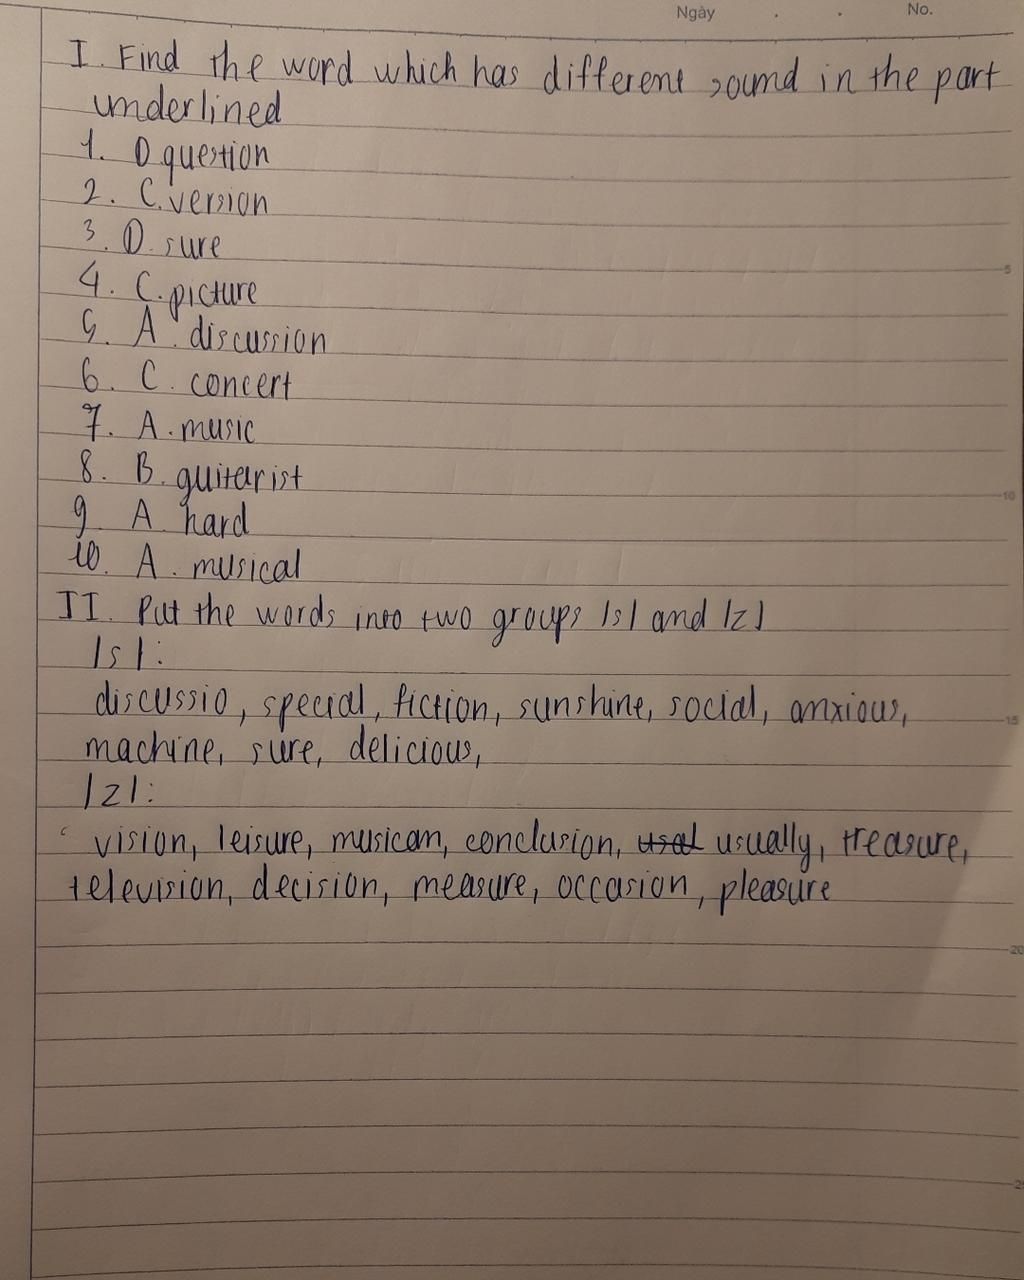 Ngày . . No.
I. Find the word which has different sound in the part
underlined
1. D question
2. C. version
3. D. sure
4. C. picture
5. A. discussion
6. C. concert
7. A. music
8. B. guitarist
9. A hard
10. A. musical
II. Put the words into two groups /s/ and /z/
/s/:
discussio, special, fiction, sunshine, social, anxious,
machine, sure, delicious,
/z/:
vision, leisure, musican, conclusion, usal usually, treasure,
television, decision, measure, occasion, pleasure
5
10
15
20